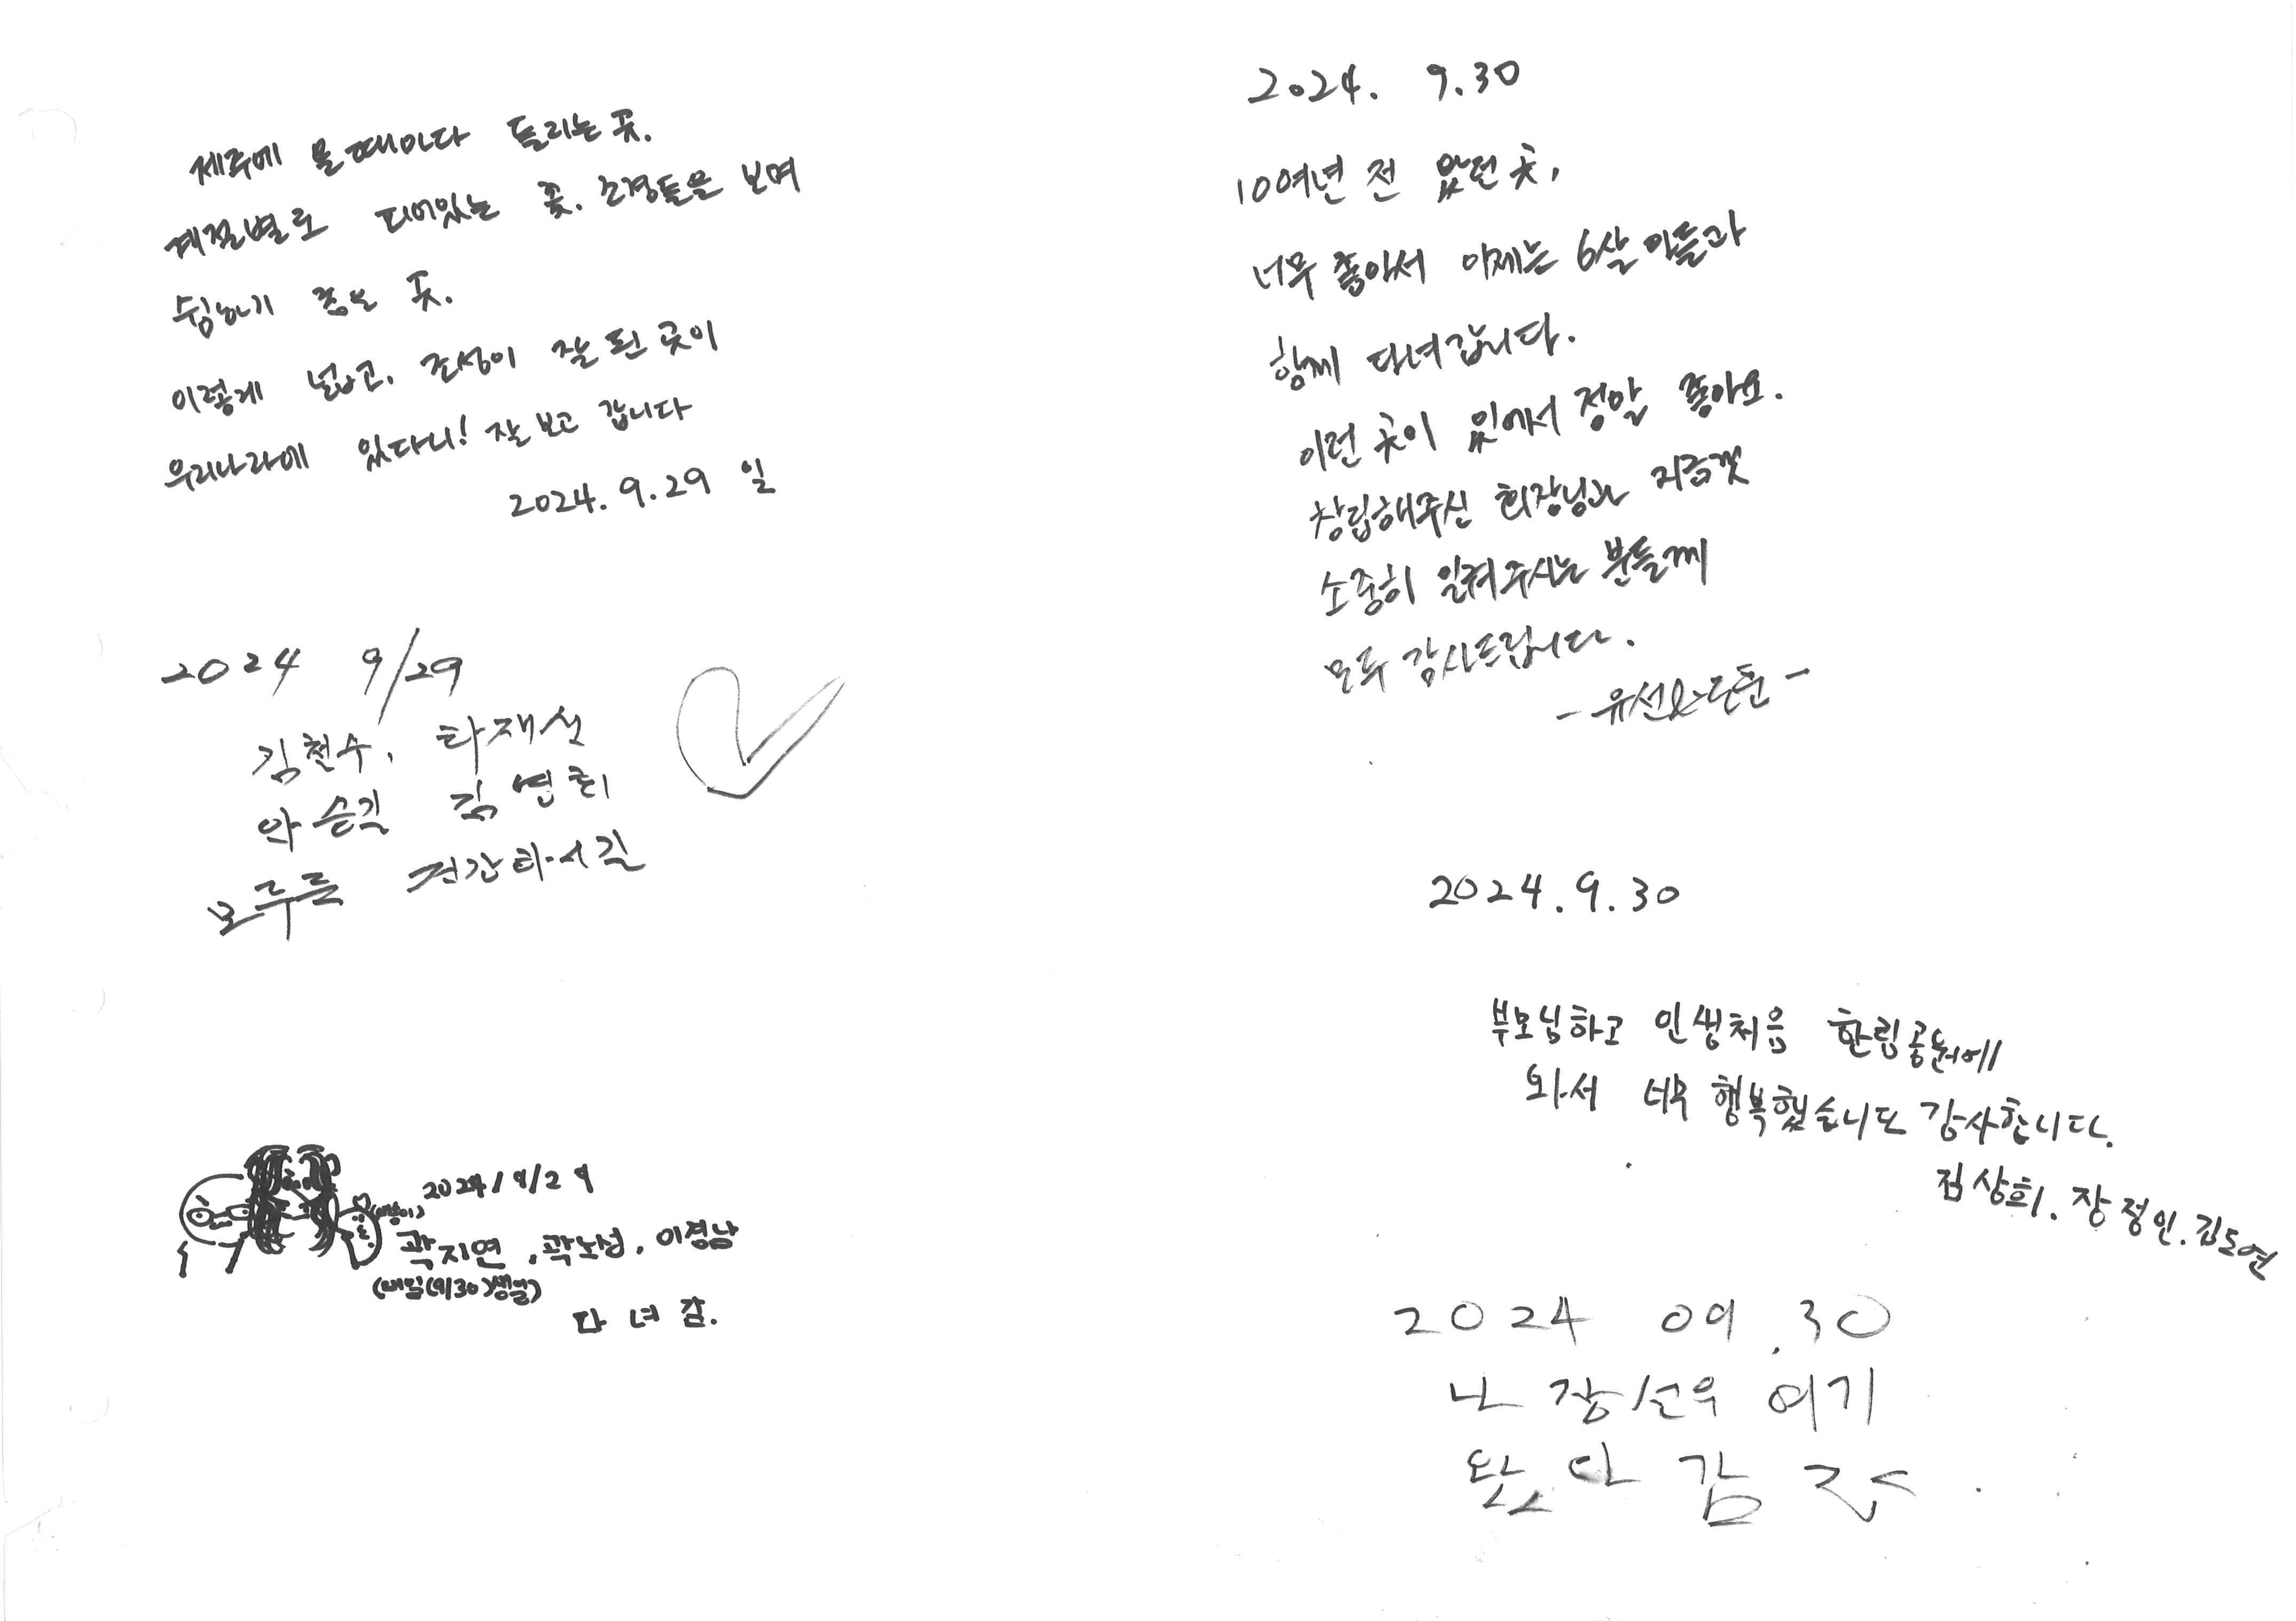 제주에 올때마다 들리는 곳.
계절별로 피어있는 꽃. 조경들을 보며
쉼하기 좋은 곳.
이렇게 넓고, 조성이 잘 된 곳이
우리나라에 있다니! 잘 보고 갑니다
2024. 9. 29 일
2024 9/29
김현수,
김연희
모두들
2024/9/29
곽지연, 곽노성, 이경남
(내일(9/30)생일)
다녀감.
2024. 9.30
10여년 전 왔던 곳,
너무 좋아서 이제는 6살 아들과
함께 다녀갑니다.
이런 곳이 있어서 정말 좋아요.
창립해주신 회장님과 지금껏
소중히 일궈주시는 분들께
모두 감사드립니다.
2024. 9. 30
부모님하고 인생처음 한림공원에
와서 너무 행복했습니다 감사합니다.
김상희. 장정인. 김도연
2024 09.30
나 장선우 여기
왔다 감